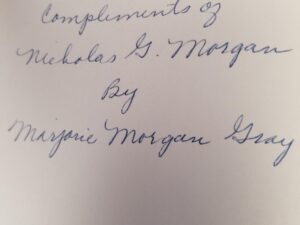 Compliments of
Nicholas G. Morgan
By
Marjorie Morgan Gray